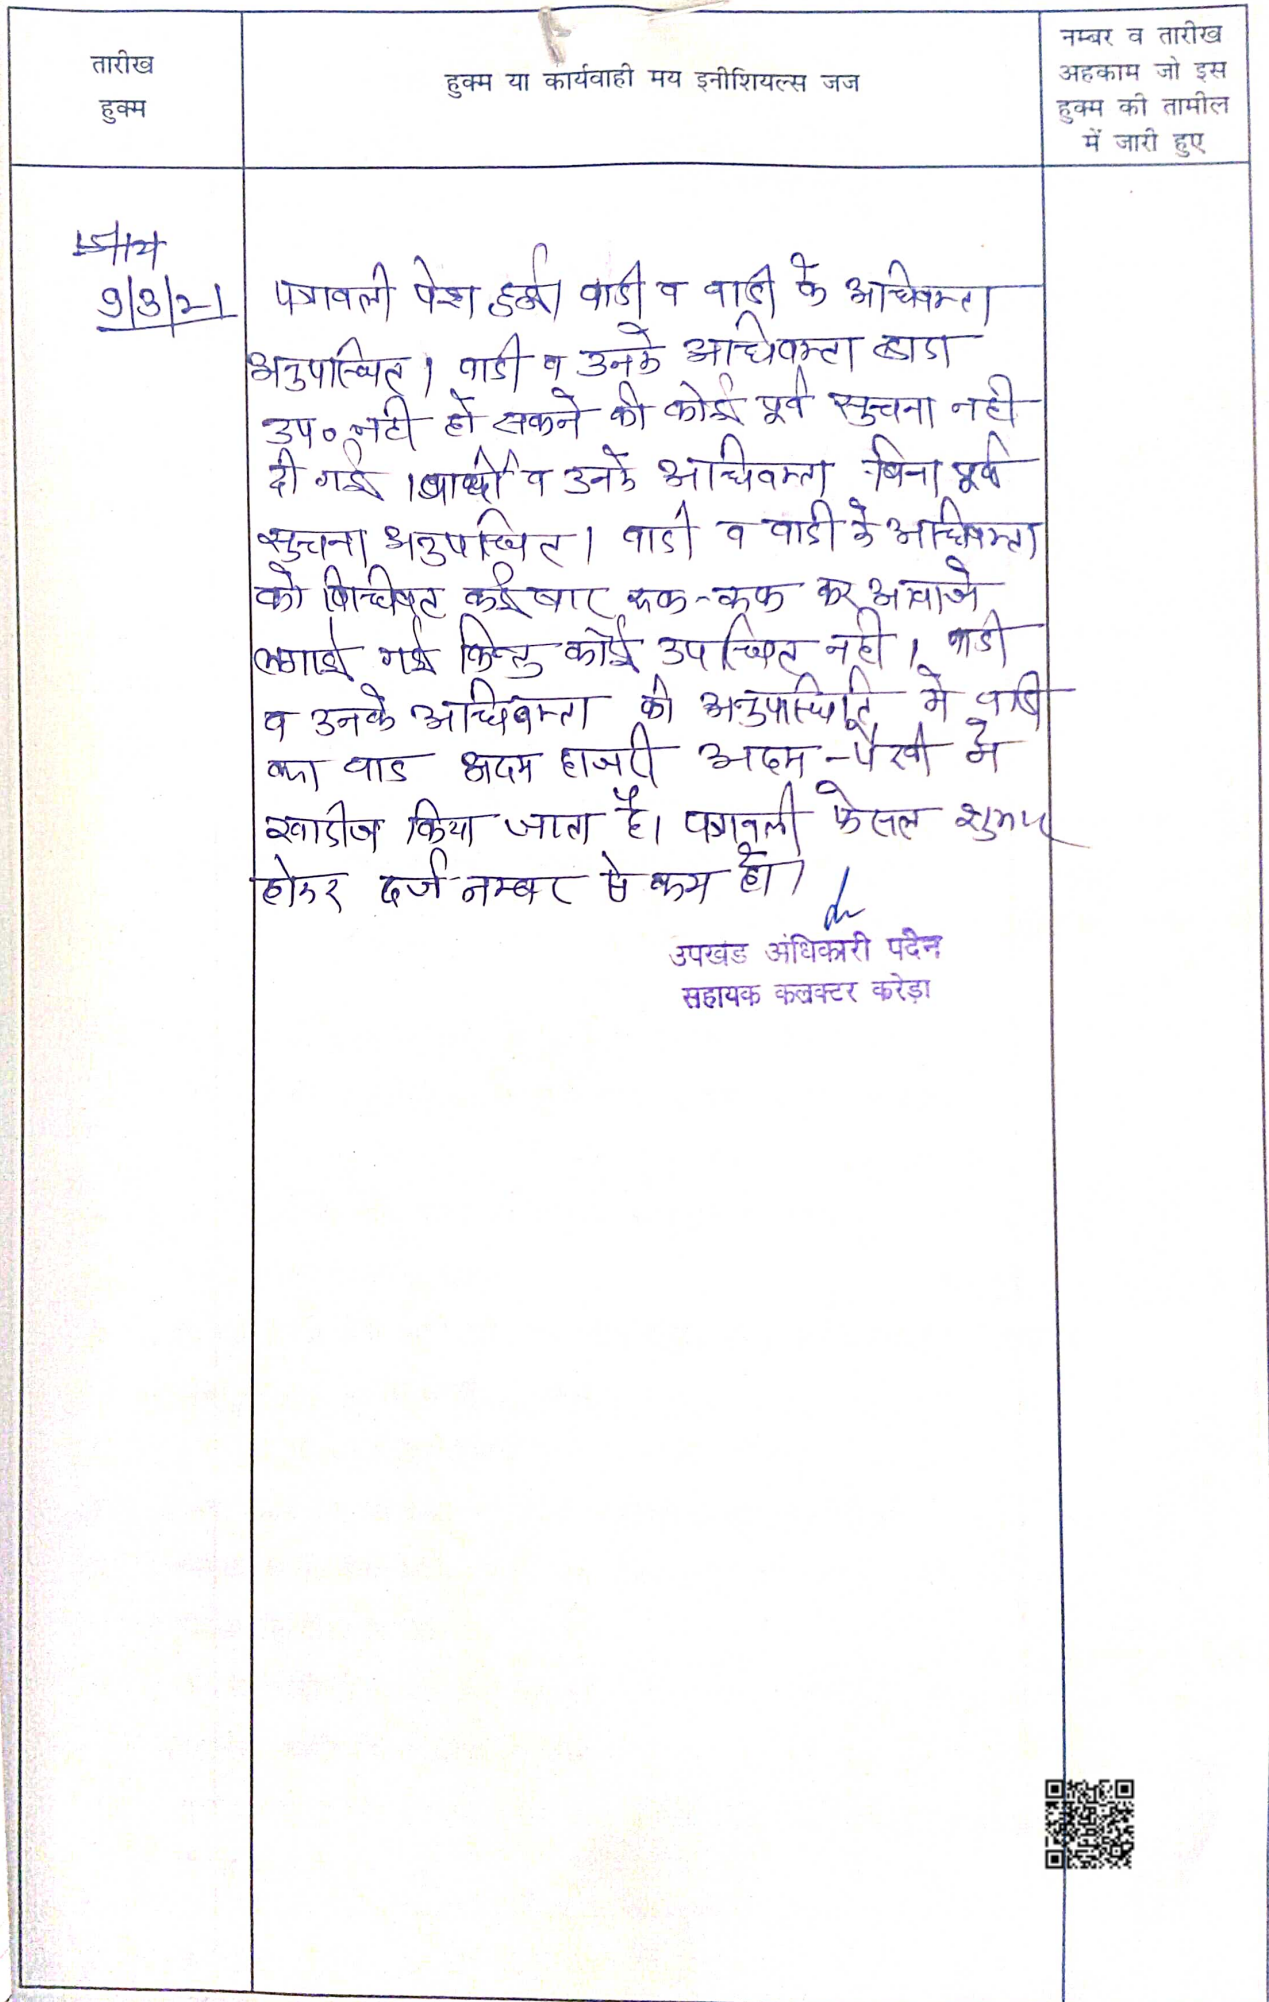 तारीख
हुक्म
हुक्म या कार्यवाही मय इनीशियल्स जज
नम्बर व तारीख
अहकाम जो इस
हुक्म की तामील
में जारी हुए
9/3/21
पत्रावली पेश हुई। वादी व वादी के अधिवक्ता
अनुपस्थित। वादी व उनके अधिवक्ता द्वारा
उप० नही हो सकने की कोई पूर्व सुचना नही
दी गई। व उनके अधिवक्ता बिना पूर्व
सुचना अनुपस्थित। वादी व वादी के अधिवक्ता
को कई बार रूक-रूक कर आवाजे
लगाई गई किन्तु कोई उपस्थित नही। वादी
व उनके अधिवक्ता की अनुपस्थिति मे वादी
का वाद अदम हाजरी अदम-पैरवी मे
खादीज किया जाता है। पत्रावली फेसल शुमार
होकर दर्ज नम्बर से कम हो।
उपखंड अधिकारी पदेन
सहायक कलक्टर करेड़ा